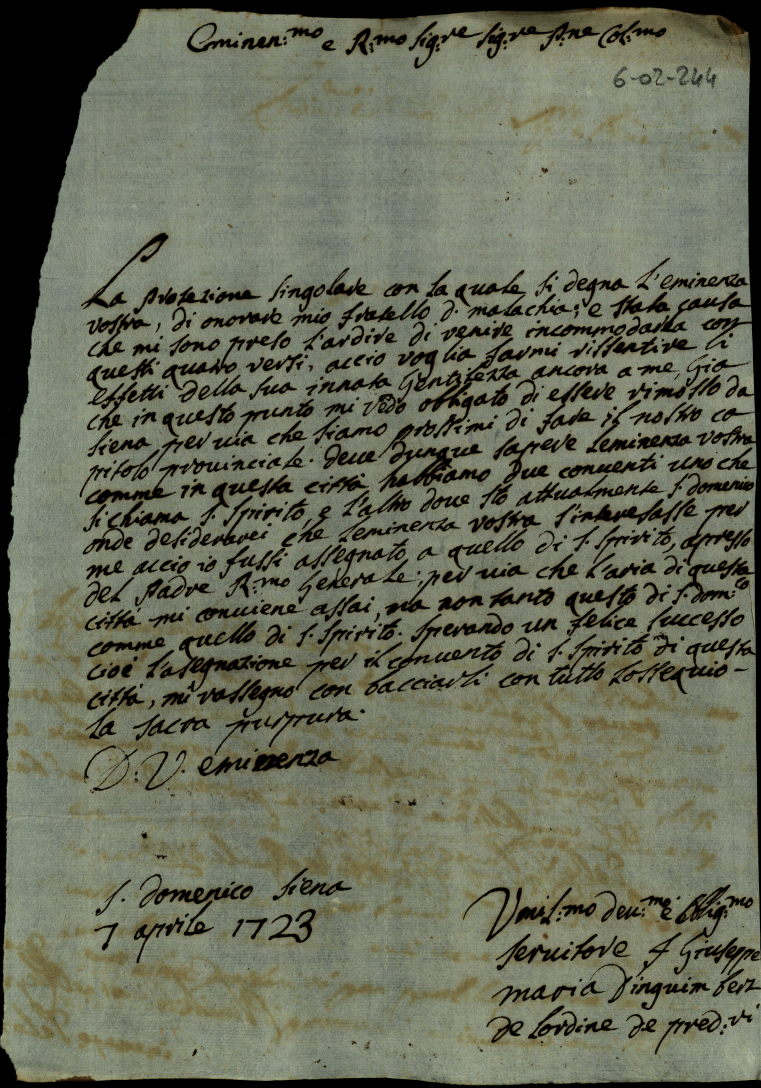 Eminen:mo e R:mo Sig:re Sig:re P:ne Col:mo
6-02-244
La protezione singolare con la quale si degna L'eminenza
vostra, di onorare mio fratello d. malachia; e stata causa
che mi sono preso l'ardire di venire incommodarla con
questi quatro versi, accio voglia farmi rissentire li
effetti della sua innata Gentilezza ancora a me, Gia
che in questo punto mi vedo obligato di essere rimosso da
siena per via che siamo prossimi di fare il nostro ca
pitolo provinciale. deve dunque sapere Leminenza vostra
comme in questa città habbiamo due conventi uno che
si chiama S. Spirito, e l'altro dove sto attualmente S. domenico
onde desiderarei che Leminenza vostra s'interesasse per
me accio io fussi assegnato a quello di S. Spirito, apresso
del Padre R:mo Generale; per via che l'aria di questa
città mi conviene assai, ma non tanto questo di S. dom:co
comme quello di S. Spirito. Sperando un felice successo
cioè l'asegnazione per il convento di S. Spirito di questa
città, mi rassegno con bacciarli con tutto Lossequio -
la sacra purpura.
D. V. eminenza
S. Domenico Siena
7 aprile 1723
Umil:mo dev:mo e Oblig:mo
servitore f Giuseppe
maria D'inguimbert
de Lordine de pred:ri